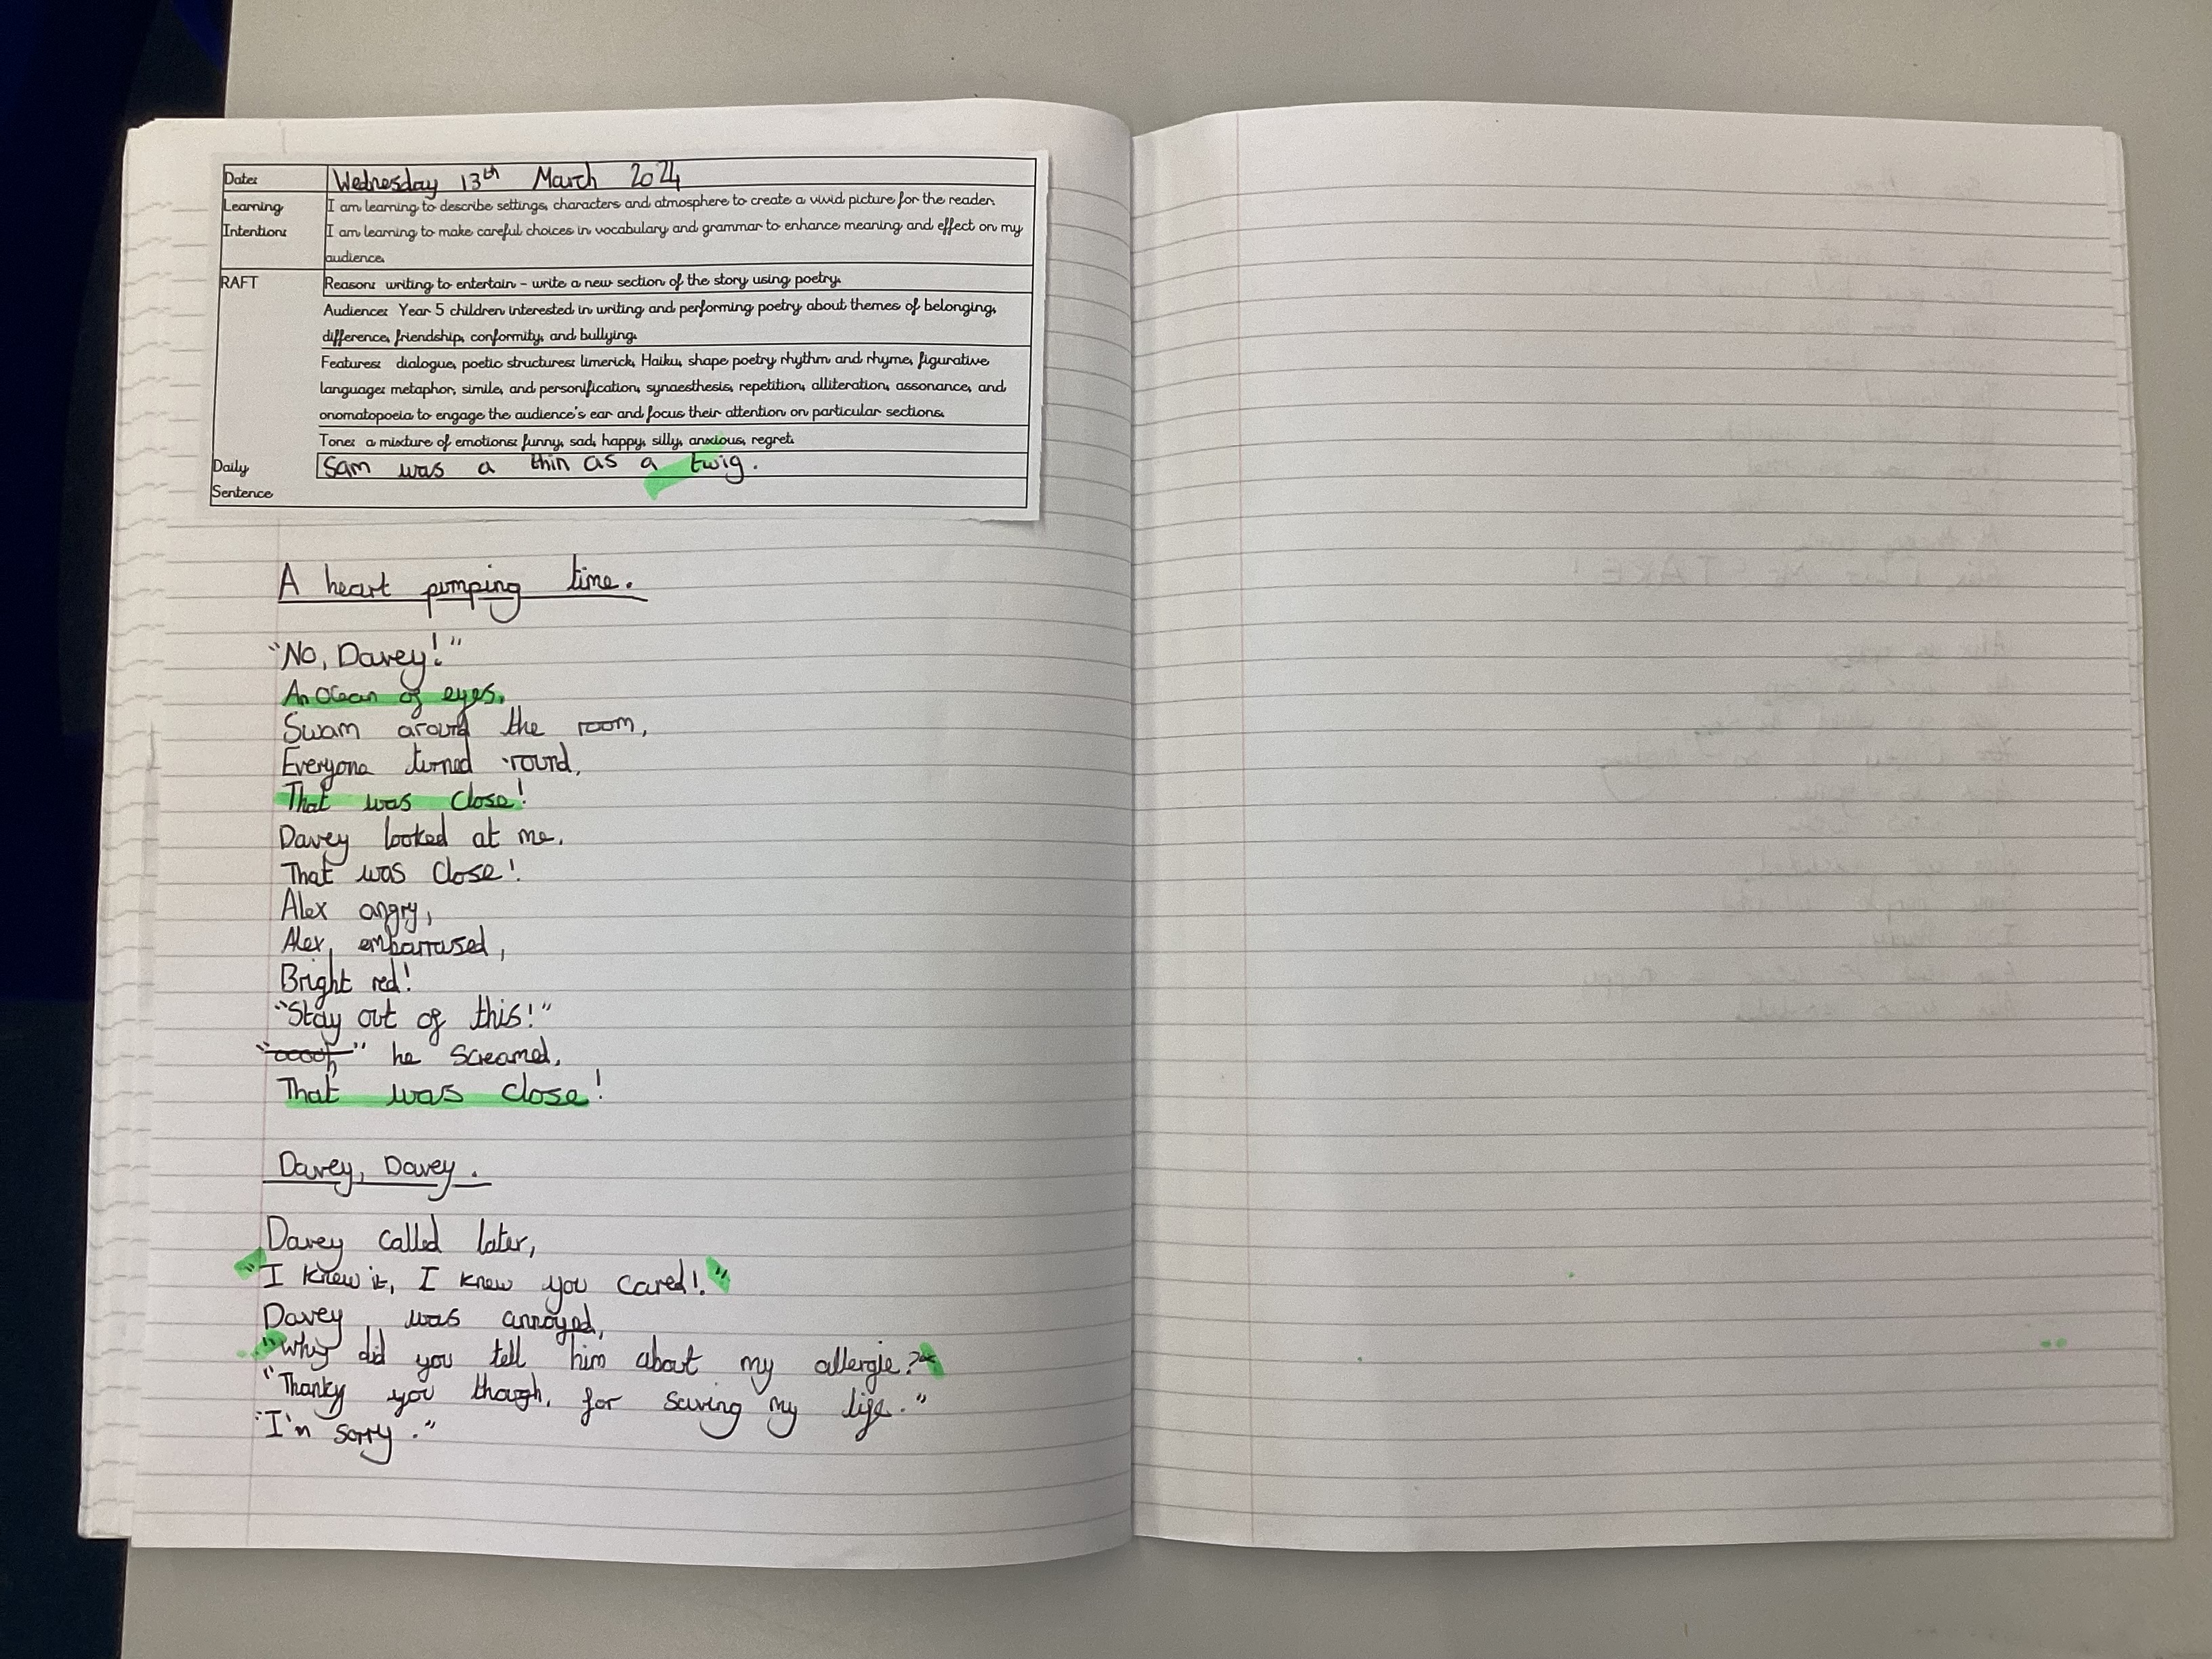 Date: Wednesday 13th March 2024
Learning Intention: I am learning to describe settings, characters and atmosphere to create a vivid picture for the reader.
I am learning to make careful choices in vocabulary and grammar to enhance meaning and effect on my
audience.
RAFT Reason: writing to entertain – write a new section of the story using poetry.
Audience: Year 5 children interested in writing and performing poetry about themes of belonging,
difference, friendship, conformity, and bullying.
Features: dialogue, poetic structures: limerick, Haiku, shape poetry rhythm and rhyme, figurative
language: metaphor, simile, and personification, synaesthesis, repetition, alliteration, assonance, and
onomatopoeia to engage the audience's ear and focus their attention on particular sections.
Tone: a mixture of emotions: funny, sad, happy, silly, anxious, regret.
Daily Sentence Sam was a thin as a twig.
A heart pumping time.
"No, Davey!"
An Ocean of eyes.
Swam around the room,
Everyone turned 'round,
That was close!
Davey looked at me.
That was close!
Alex angry,
Alex embarrused,
Bright red!
"Stay out of this!"
he screamed.
That was close!
Davey, Davey.
Davey called later,
"I knew it, I knew you cared!"
Davey was annoyed,
"Why did you tell him about my allergie?"
"Thanky you though, for saving my life."
"I'm sorry."